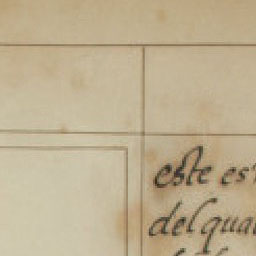 este es
del qua